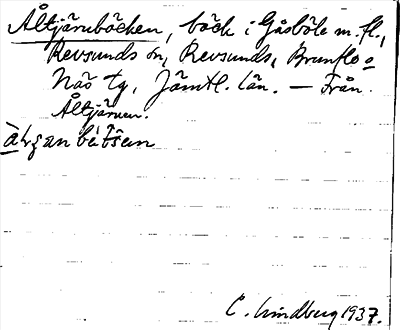 Åltjärnbäcken, bäck i Gåsböle m.fl.,
Revsunds sn, Revsunds, Brunflo o
Näs tg, Jämtl. län. — Från
Åltjärnen.
C. Lindberg 1937.